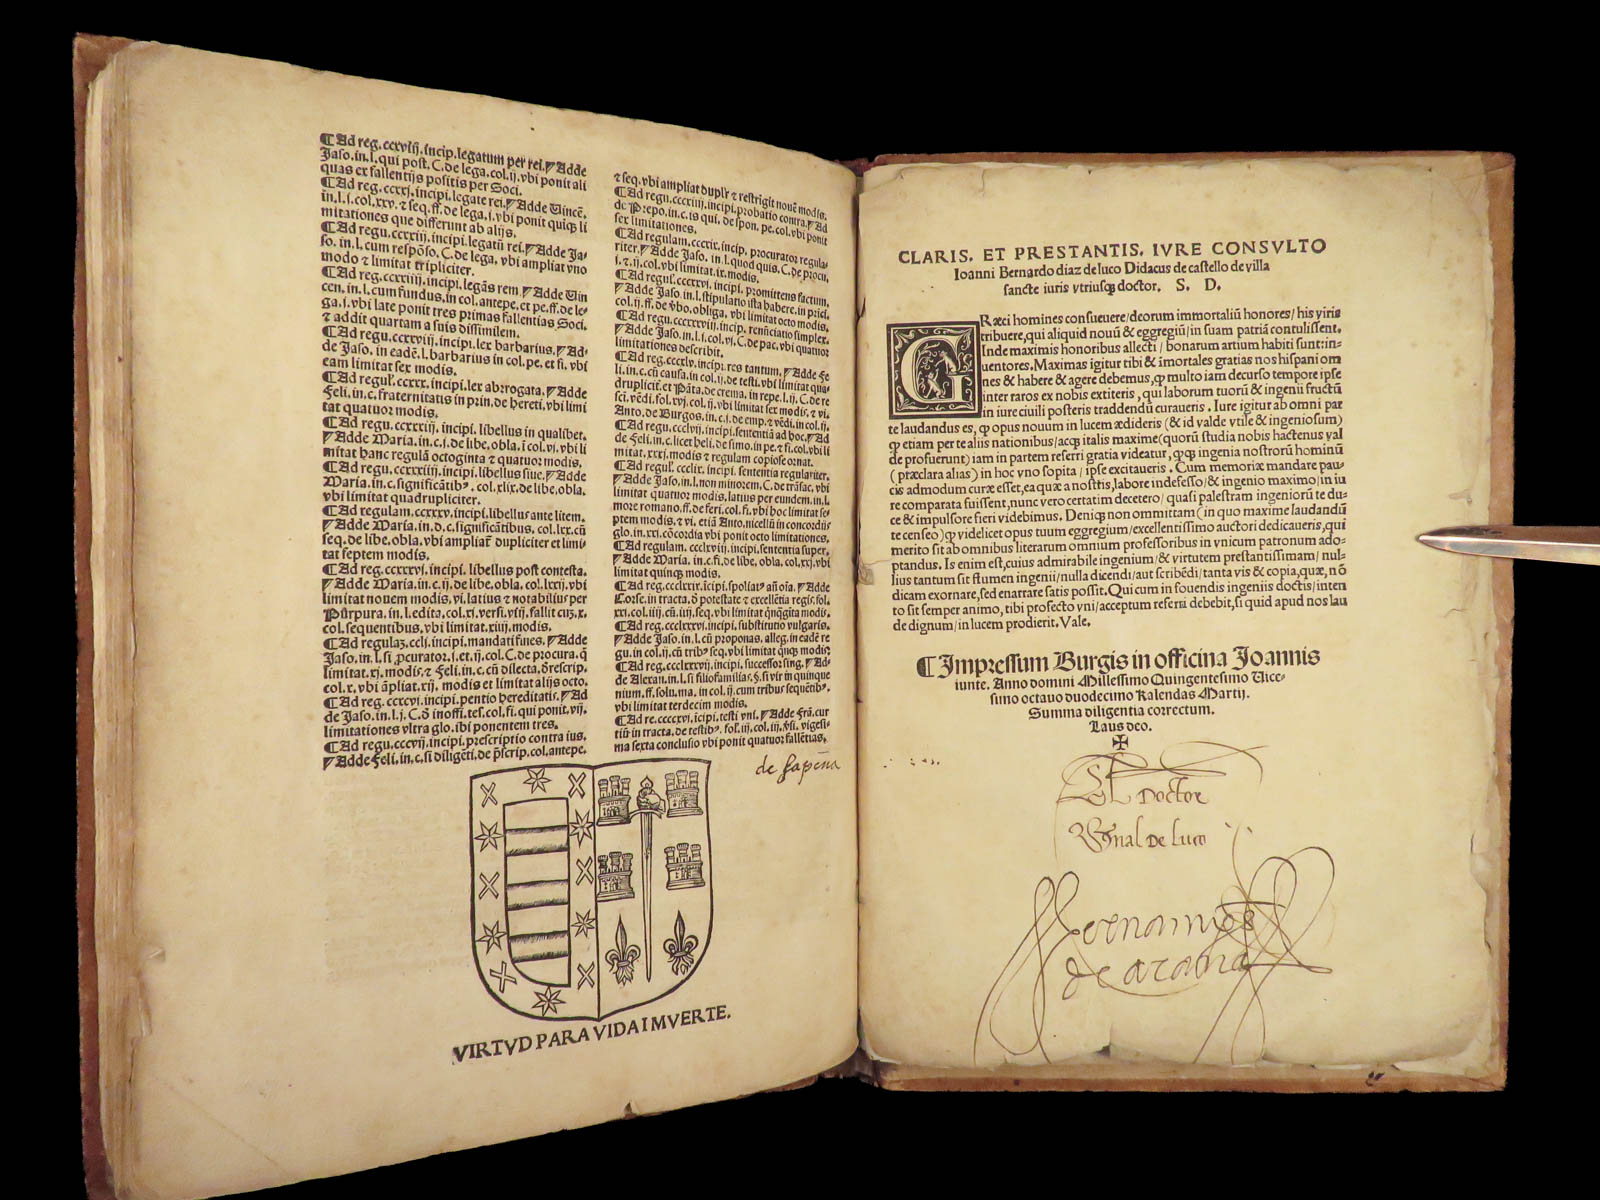 ¶Ad reg. ccxviij. incip. legatum per rei. Adde
Jaso. in. l. qui post. C. de lega. col. ij. vbi ponit ali
quas ex fallentijs positis per Soci.
¶Ad reg. ccxxj. incipi. legate rei. Adde Uincẽ.
in. l. j. col. xxv. ⁊ seq. ff. de lega. j. vbi ponit quiqꝫ li
mitationes que differunt ab alijs.
¶Ad reg. ccxxiij. incipi. legatũ rei. Adde Ja-
so. in. l. cum respõso. C. de lega. vbi ampliat vno
modo ⁊ limitat tripliciter.
¶Ad reg. ccxxiiij. incipi. legãs rem. Adde Uin
cen. in. l. cum fundus. in col. antepe. et pe. ff. de le-
ga. j. vbi late ponit tres primas fallentias Soci.
⁊ addit quartam a suis dissimilem.
¶Ad reg. ccxxviij. incipi. lex barbarius. Ad-
de Jaso. in eadẽ. l. barbarius in col. pe. et fi. vbi
eam limitat sex modis.
¶Ad regul. ccxxx. incipi. lex abrogata. Adde
Feli. in. c. fraternitatis in prin. de hereti. vbi limi
tat quatuor modis.
¶Ad regu. ccxxxiij. incipi. libellus in qualibet.
Adde Maria. in. c. j. de libe. obla. ĩ col. vj. vbi li
mitat hanc regulã octoginta ⁊ quatuor modis.
¶Ad regu. ccxxxiiij. incipi. libellus siue. Adde
Maria. in. c. significãtibꝰ. col. xlix. de libe. obla.
vbi limitat quadrupliciter.
¶Ad regulam. ccxxxv. incipi. libellus ante litem.
Adde Maria. in. d. c. significãtibus. col. lxx. cũ
seq. de libe. obla. vbi ampliat dupliciter et limi
tat septem modis.
¶Ad reg. ccxxxvj. incipi. libellus post contesta.
Adde Maria. in. c. ij. de libe. obla. col. lxxij. vbi
limitat nouem modis. vi. latius ⁊ notabilius per
Pũrpura. in. l. edita. col. xj. versi. viij. fallit cuz. x.
col. sequentibus. vbi limitat. xiiij. modis.
¶Ad regulaz. cclj. incipi. mandati fines. Adde
Jaso. in. l. si ꝓcurator. j. et. ij. col. C. de procura. q̃
limitat. xj. modis. ⁊ Feli. in. c. cũ dilecta. de rescrip.
col. x. vbi ãpliat. xij. modis et limitat alijs octo.
¶Ad reg. ccxcvj. incipi. pentio hereditatis. Ad
de Jaso. in. l. j. C. de inoffi. tes. col. fi. qui ponit. vij.
limitationes vltra glo. ibi ponentem tres.
¶Ad regu. cccvij. incipi. prescriptio contra ius.
Adde Feli. in. c. si diligẽti. de pscrip. col. antepe.
⁊ seq. vbi ampliat duplr̃ ⁊ restrigit nouẽ modis.
¶Ad regu. cccxiiij. incipi. probatio contra. Ad
de Prepo. in. c. is qui. de spon. pe. col. vbi ponit
sex limitationes.
¶Ad regulam. cccxix. incip. procurator regula-
riter. Adde Jaso. in. l. quod quis. C. de procu.
j. ⁊. ij. col. vbi limitat. ix. modis.
¶Ad regul. cccxxvj. incipi. promittens factum.
Adde Jaso. in. l. stipulatio ista habere. in prici.
col. ij. ff. de vbo. obliga. vbi limitat octo modis.
incip. renũciatio simplex.
Adde Jaso. in. l. j. col. vj. C. de pac. vbi quatuor
limitationes describit.
¶Ad reg. ccclv. incipi. res tantum. Adde Fe
li. in. c. cũ causa. in col. ij. de testi. vbi limitat qua-
druplicit. et Pãta. de crema. in repe. l. ij. C. de re
sci. vẽdi. fol. xvj. col. ij. vbi limitat sex modis. ⁊ vi.
Anto. de Burgos. in. c. j. de emp. ⁊ vẽdi. in col. ij.
¶Ad regu. ccclvij. incipi. sententiã ad hoc. Ad
de Feli. in. c. licet heli. de simo. in pe. ⁊ fi. col. vbi li
mitat. xxxj. modis ⁊ regulam copiose ornat.
¶Ad regul. ccclix. incipi. sententia regulariter.
Adde Jaso. in. l. non minorem. C. de trãsac. vbi
limitat quatuor modis. latius per eundem. in. l.
more romano. ff. de feri. col. fi. vbi hoc limitat se-
ptem modis. ⁊ vi. etiã Anto. nicellũ in concordijs
glo. in. xxj. cõcordia vbi ponit octo limitationes.
¶Ad regulam. ccclxviij. incipi. sententia super.
Adde Maria. in. c. fi. de libe. obla. col. xxj. vbi
limitat quinqꝫ modis.
¶Ad reg. ccclxxix. icipi. spoliatꝰ añ oĩa. Adde
Corse. in tracta. de potestate ⁊ excellẽtia regis. fol.
xxj. col. iiij. cũ. iiij. seq. vbi limitat q̃nqgĩta modis.
¶Ad reg. ccclxxxvj. incipi. substitutio vulgaris.
Adde Jaso. in. l. cũ proponas. alleg. in eadẽ re
gu. in col. ij. cũ tribꝰ seq. vbi limitat quĩqꝫ modis
¶Ad reg. ccclxxxvij. incipi. successor sing. Ad-
de Alexan. in. l. si filiofamilias. §. si vir in quinque
nium. ff. solu. ma. in col. ij. cum tribus sequẽtibꝰ.
vbi limitat terdecim modis.
¶Ad re. ccccxvj. icipi. testi vni. Adde Frã. cur
tiũ in tracta. de testibꝰ. fol. iij. col. iij. ꝟsi. vigesi-
ma sexta conclusio vbi ponit quatuor fallẽtias.
de
VIRTVD PARA VIDA I MVERTE.
CLARIS. ET PRESTANTIS. IVRE CONSVLTO
Ioanni Bernardo diaz de luco Didacus de castello de villa
sancte iuris vtriusqꝫ doctor. S. D.
GRæci homines consueuere/deorum immortaliũ honores/ his viris
tribuere, qui aliquid nouũ & eggregiũ/in suam patriã contulissent.
Inde maximis honoribus allecti / bonarum artium habiti sunt:in-
uentores. Maximas igitur tibi & imortales gratias nos hispani om
nes & habere & agere debemus, ꝙ multo iam decurso tempore ipse
inter raros ex nobis extiteris, qui laborum tuorũ & ingenii fructũ
in iure ciuili posteris traddendũ curaueris. Iure igitur ab omni par
te laudandus es, ꝙ opus nouum in lucem ædideris (& id valde vtile & ingeniosum)
ꝙ etiam per te aliis nationibus/acqꝫ italis maxime (quorũ studia nobis hactenus val
de profuerunt) iam in partem referri gratia videatur, ꝙqꝫ ingenia nostrorũ hominũ
(præclara alias) in hoc vno sopita / ipse excitaueris. Cum memoriæ mandare pau-
cis admodum curæ esset, ea quæ a nostris, labore indefesso/& ingenio maximo/in iu
re comparata fuissent, nunc vero certatim decetero/ quasi palestram ingeniorũ te du-
ce & impulsore fieri videbimus. Deniqꝫ non ommitam (in quo maxime laudandũ
te censeo) ꝙ videlicet opus tuum eggregium/excellentissimo auctori dedicaueris, qui
merito sit ab omnibus literatum omnium professoribus in vnicum patronum ado-
ptandus. Is enim est, cuius admirabile ingenium/& virtutem prestantissimam/nul-
lius tantum sit flumen ingenii/nulla dicendi/aut scribẽdi/tanta vis & copia, quæ, nõ
dicam exornare, sed enarrare satis possit. Qui cum in fouendis ingeniis doctis/inten
to sit semper animo, tibi profecto vni/acceptum referri debebit, si quid apud nos lau
de dignum/in lucem prodierit. Vale.
¶Impressum Burgis in officina Joannis
iunte. Anno domini Millessimo Quingentesimo Uice-
simo octauo duodecimo Kalendas Martij.
Summa diligentia correctum.
Laus deo.
✠
El Doctor
Bernal De Luco
Hernamdes
de arana